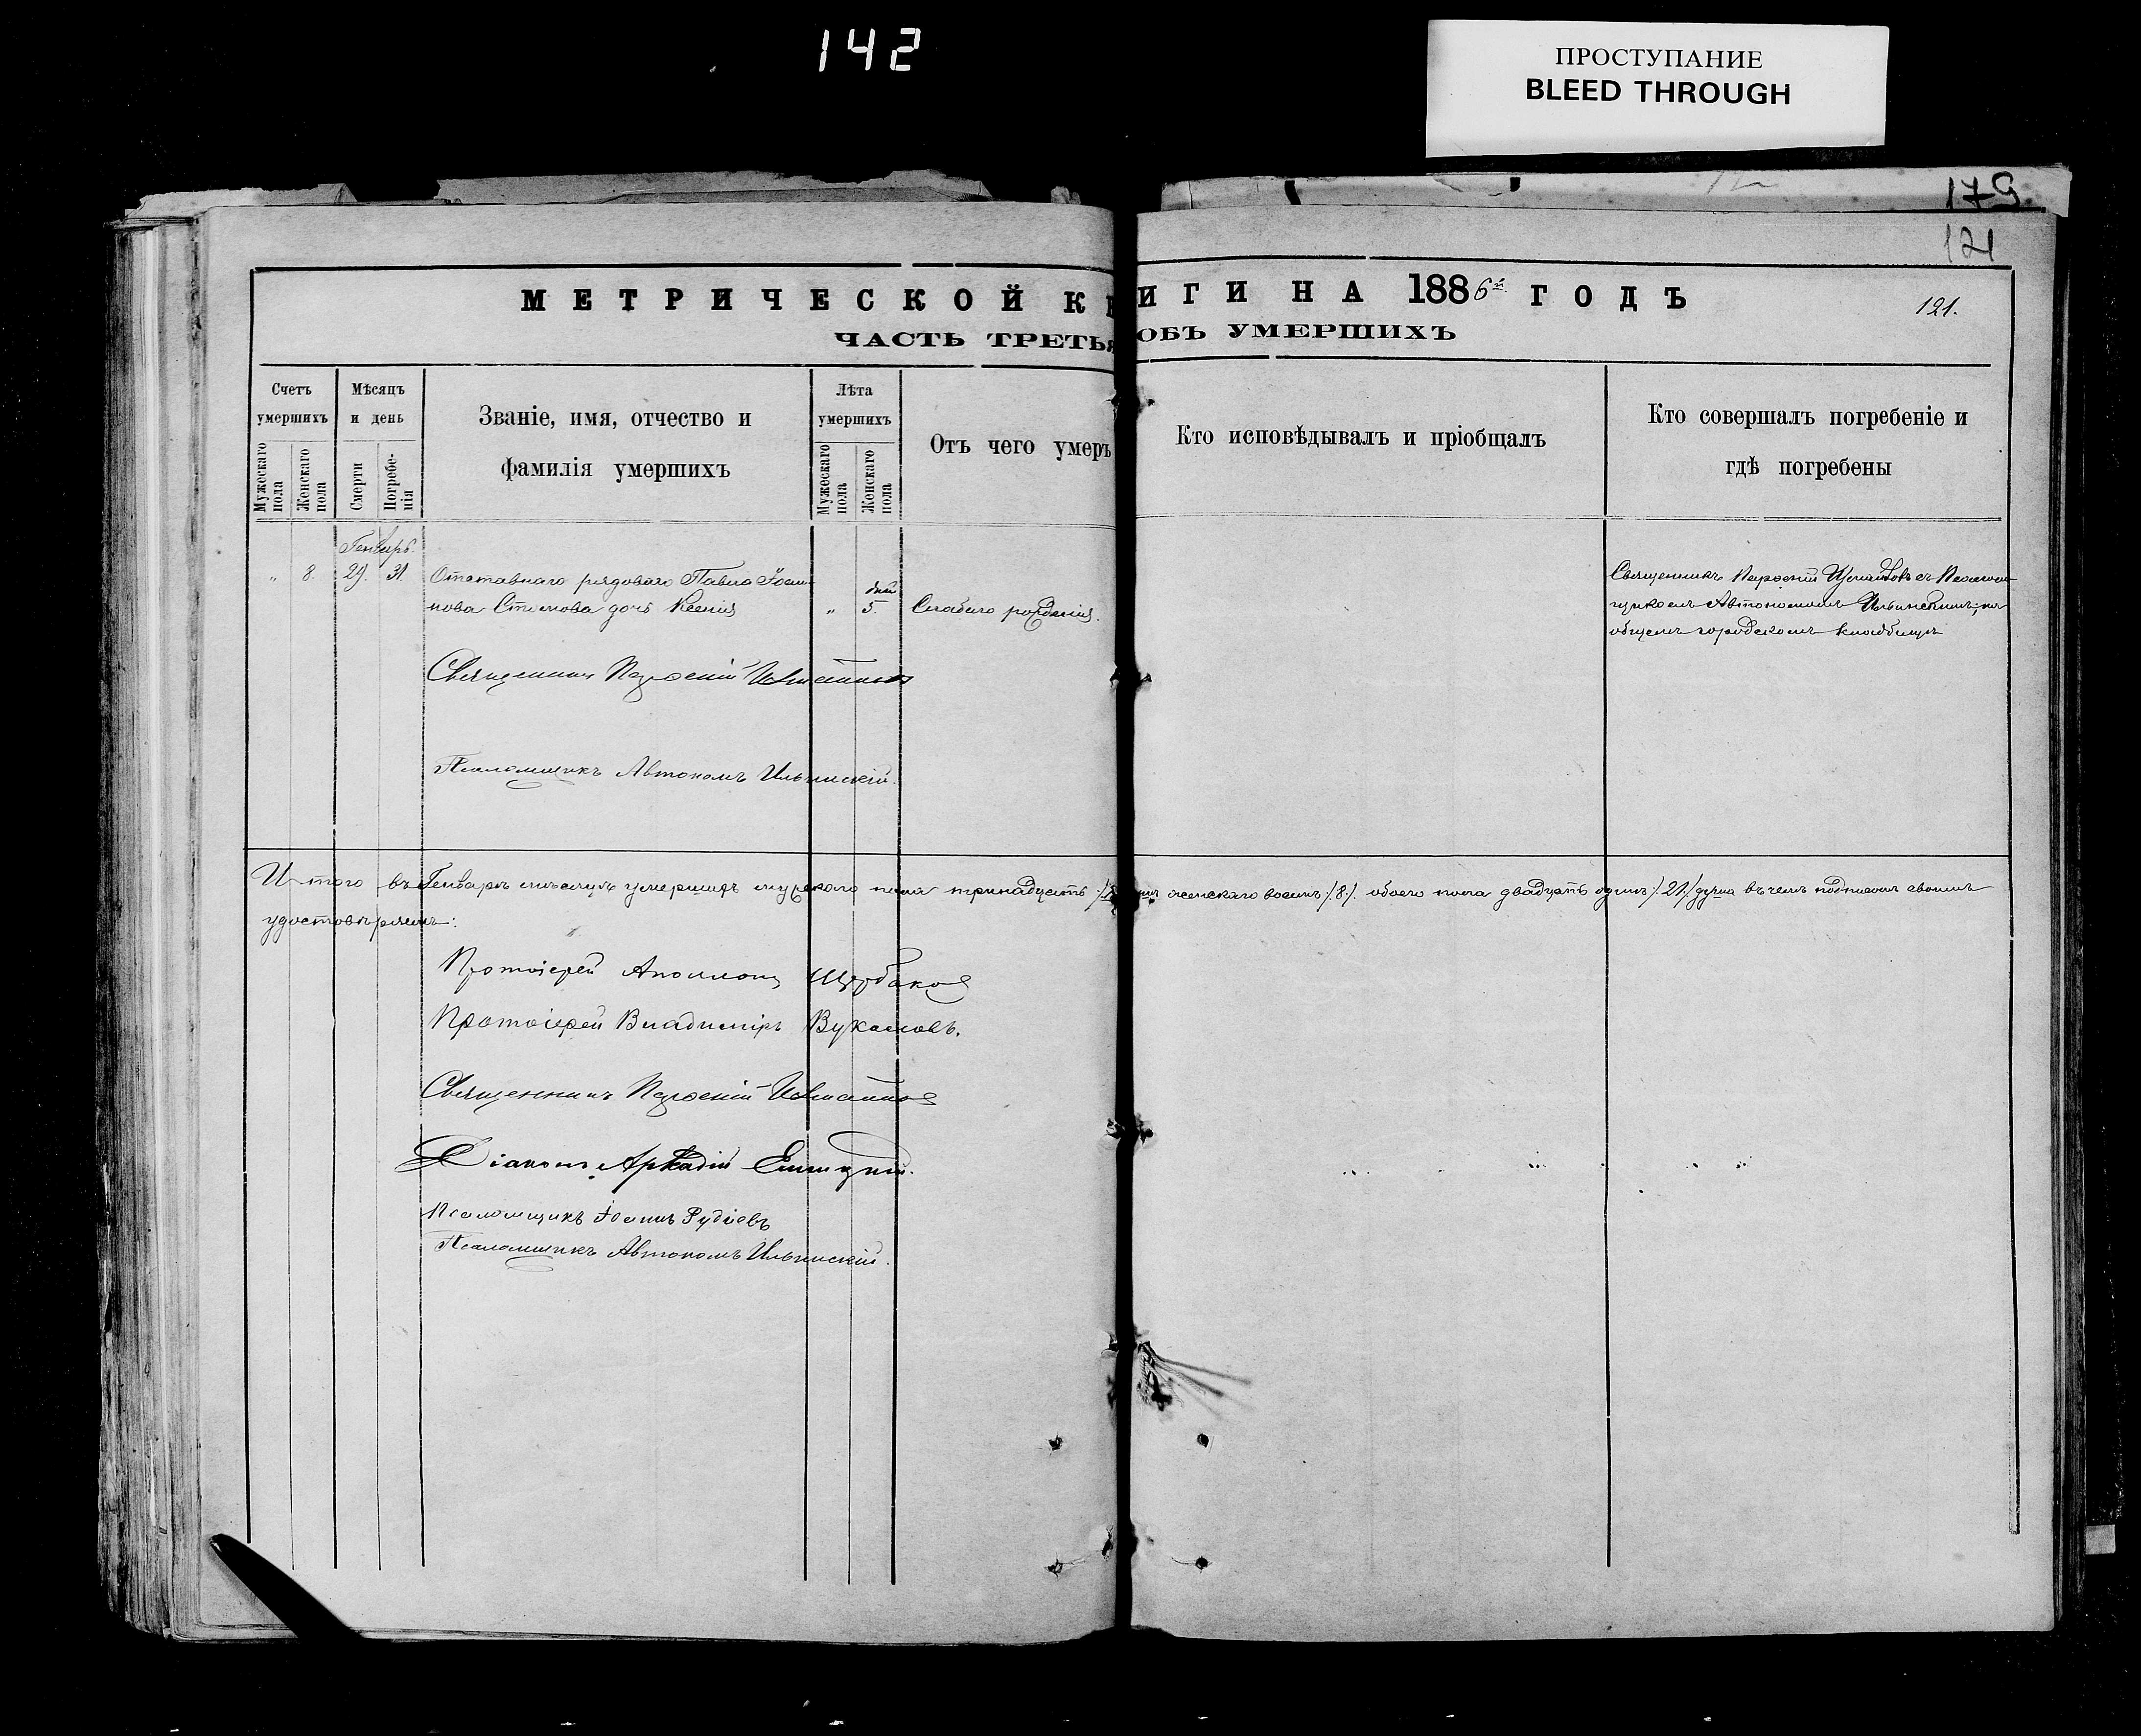 142
ПРОСТУПАНИЕ
BLEED THROUGH
179.
121
МЕТРИЧЕСКОЙ КНИГИ НА 1886й ГОДЪ
121.
ЧАСТЬ ТРЕТЬЯ ОБЪ УМЕРШИХЪ
Счетъ умершихъ
Мужескаго пола
Женскаго пола
Мѣсяцъ и день
Смерти
Погребенія
Званіе, имя, отчество и
фамилія умершихъ
Лѣта умершихъ
Мужескаго пола
Женскаго пола
Отъ чего умеръ
Кто исповѣдывалъ и пріобщалъ
Кто совершалъ погребеніе и
гдѣ погребены
Генварь.
" 8. 29. 31. Отставнаго рядоваго Павла Іоан-
нова дочь Ксенія " дней 5. Слабаго рожденія.
Священникъ Парѳеній съ Псаломщикомъ Автономомъ Ильинскимъ; на
общемъ городскомъ кладбищѣ
Священникъ Парѳеній
Псаломщикъ Автономъ Ильинскій.
Итого въ Генварѣ мѣсяцѣ умершихъ мужскаго пола тринадцать женскаго восемь /.8./. обоего пола двадцать одинъ /.21./ душа въ чемъ подписомъ своимъ
удостовѣряемъ:
Протоіерей Аполлонъ Щербаков
Протоіерей Владиміръ Вукасовъ.
Священникъ Парѳеній
Діаконъ Аркадій
Псаломщикъ Іоаннъ Рубцевъ
Псаломщикъ Автономъ Ильинскій.